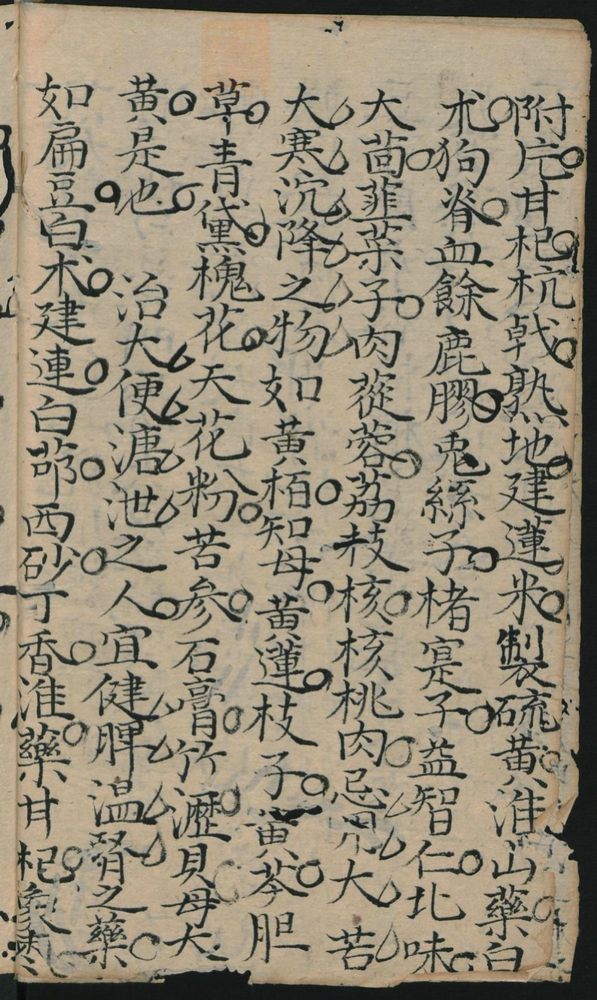 附片甘杞杭戟熟地建蓮米製硫黃淮山藥白
朮狗脊血餘鹿膠兎絲子楮寔子益智仁北味
大茴韮菜子肉蓯蓉荔枝核核桃肉忌用大苦
大寒沉降之物如黃栢知母黃蓮枝子黃芩胆
草青黛槐花天花粉苦參石膏竹瀝貝母大
黃是也　治大便溏泄之人宜健脾溫腎之藥
如扁豆白术建連白茆西砂丁香淮藥甘杞象